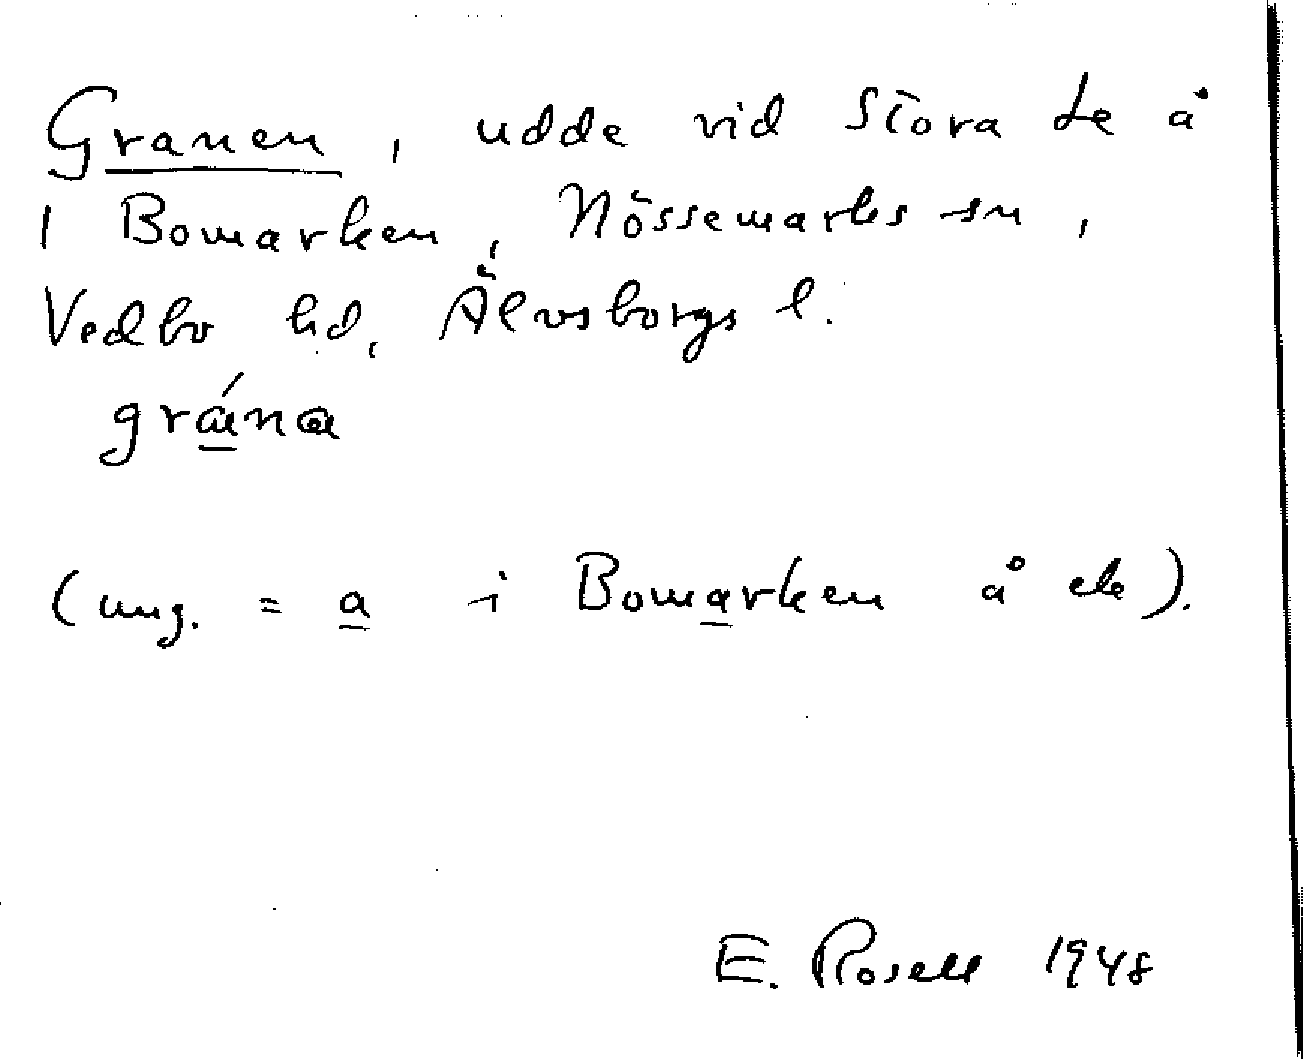 Granen, udde vid Stora Le å
i Bomarken, Nössemarks sn,
Vedbo hd, Älvsborgs l.
grána
(ung. = a i Bomarken å ele).
E. Rosell 1948